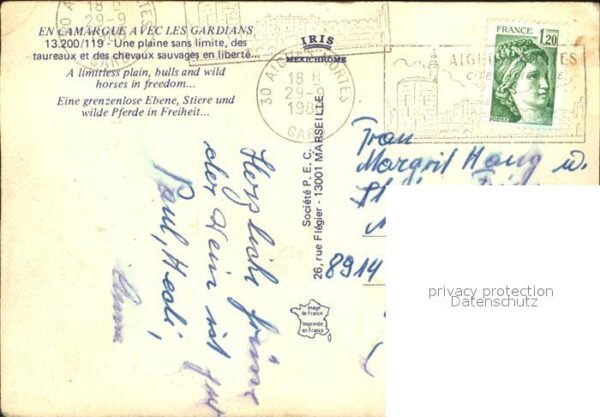 EN CAMARGUE AVEC LES GARDIANS
13.200/119 - Une plaine sans limite, des
taureaux et des chevaux sauvages en liberté...
A limitless plain, bulls and wild
horses in freedom...
Eine grenzenlose Ebene, Stiere und
wilde Pferde in Freiheit...
IRIS
MEXICHROME
18 H
29-9
GARD
30 AIGUES-MORTES
18 H
29-9
GARD
AIGUES MORTES
FRANCE
1,20
POSTES
Société P.E.C.
26, rue Flégier - 13001 MARSEILLE
Image
de France
Imprimée
en France
Herzliche Grüsse
der Wein ist gut
Paul, Hedi,
Frau
Margrit Haug
8914
privacy protection
Datenschutz